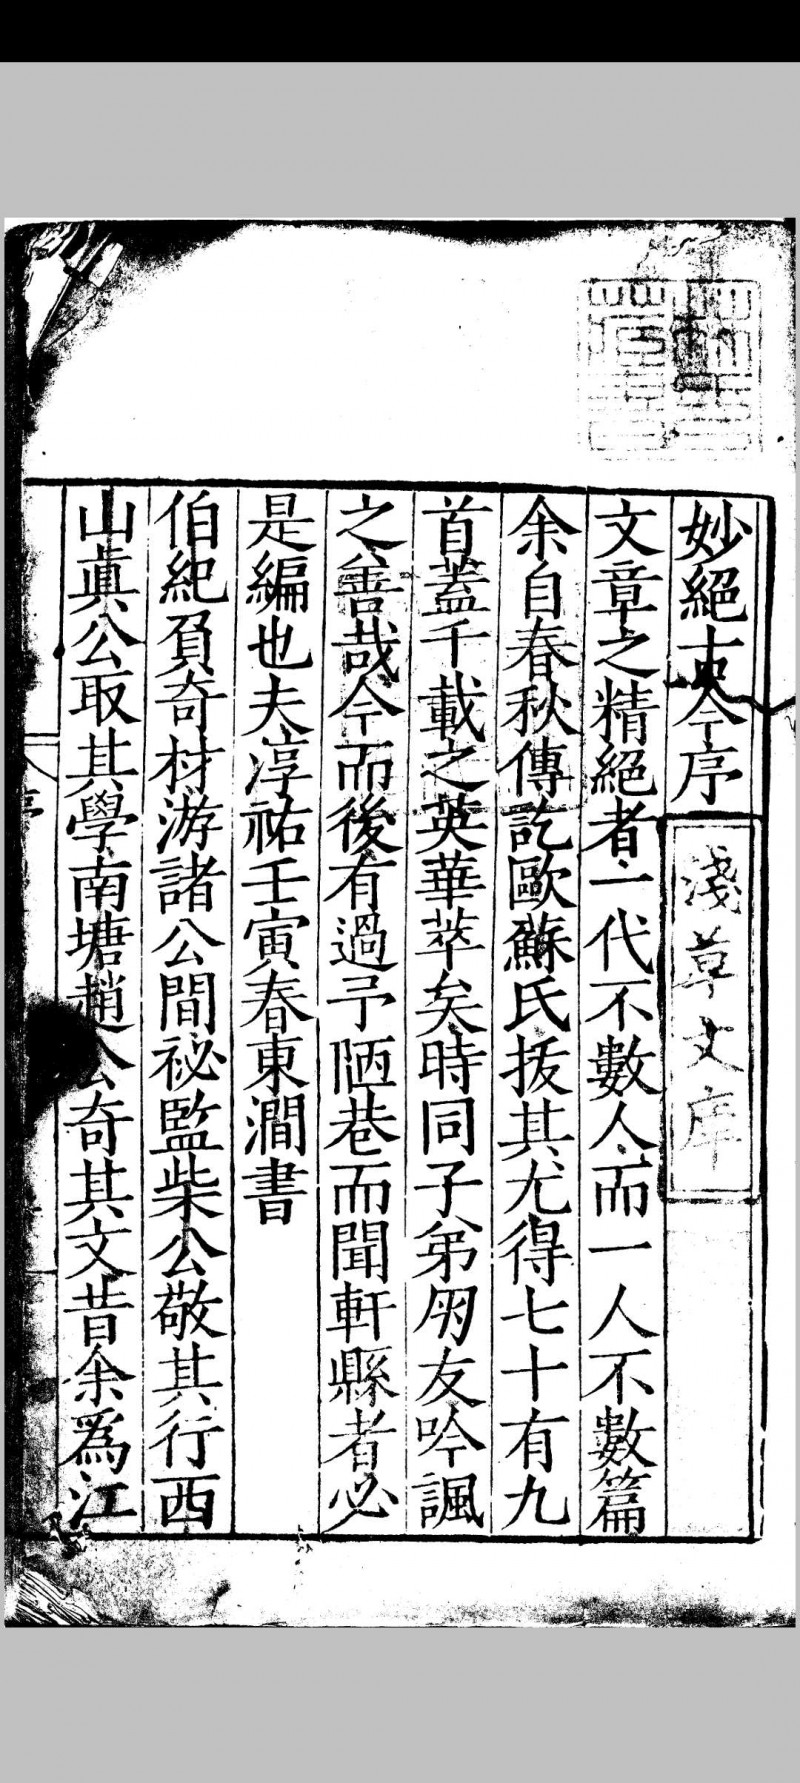 妙絕古今序
淺草文庫
文章之精絕者一代不數人而一人不數篇
余自春秋傳訖歐蘇氏拔其尤得七十有九
首蓋千載之英華萃矣時同子弟朋友吟諷
之善哉今而後有過予陋巷而聞軒縣者必
是編也夫淳祐壬寅春東澗書
伯紀負奇材游諸公間祕監柴公敬其行西
山真公取其學南塘趙公奇其文昔余為江
序